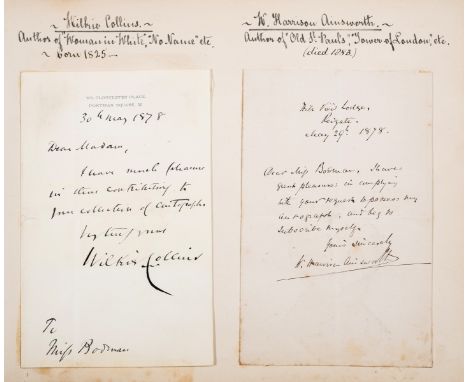 Wilkie Collins.
Author of "Woman in White", "No Name" etc.
born 1825
90, GLOUCESTER PLACE,
PORTMAN SQUARE, W.
30th May 1878
Dear Madam,
I have much pleasure
in thus contributing to
your collection of autographs
yours
Wilkie Collins
To
Miss Bodman
W. Harrison Ainsworth.
Author of "Old St. Paul's", "Tower of London", etc.
(died 1882)
Hill View Lodge,
Reigate.
May 29th. 1878.
Dear Miss Bodman, I have
great pleasure in complying
with your request to possess my
autograph, and beg to
subscribe myself
Yours sincerely
W. Harrison Ainsworth